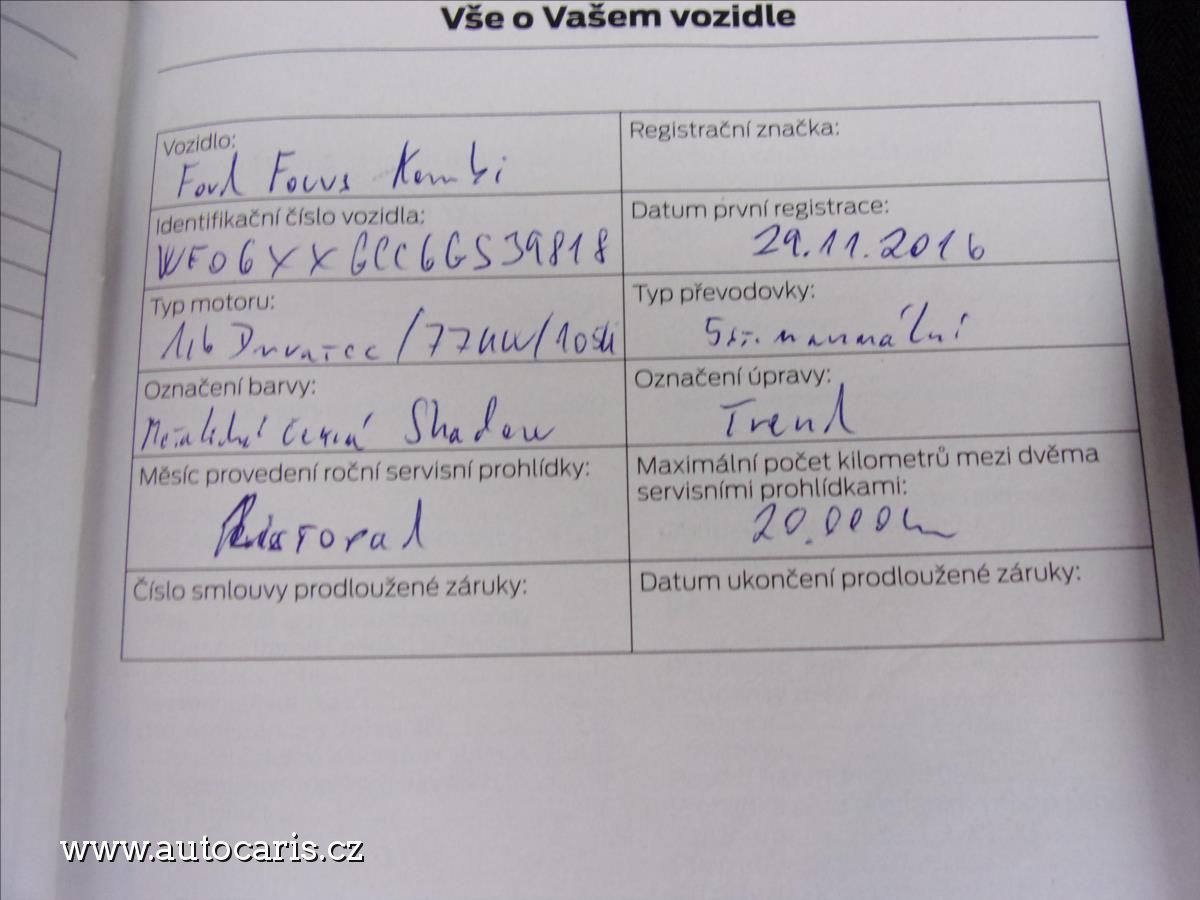 Vše o Vašem vozidle
Vozidlo:
Ford Focus Kombi
Registrační značka:
Identifikační číslo vozidla:
WF06XXGCC6GS39818
Datum první registrace:
29.11.2016
Typ motoru:
1,6 Duratec /77kW/105k
Typ převodovky:
5st. manuální
Označení barvy:
Metalická černá Shadow
Označení úpravy:
Trend
Měsíc provedení roční servisní prohlídky:
Listopad
Maximální počet kilometrů mezi dvěma
servisními prohlídkami:
20.000km
Číslo smlouvy prodloužené záruky:
Datum ukončení prodloužené záruky:
www.autocaris.cz